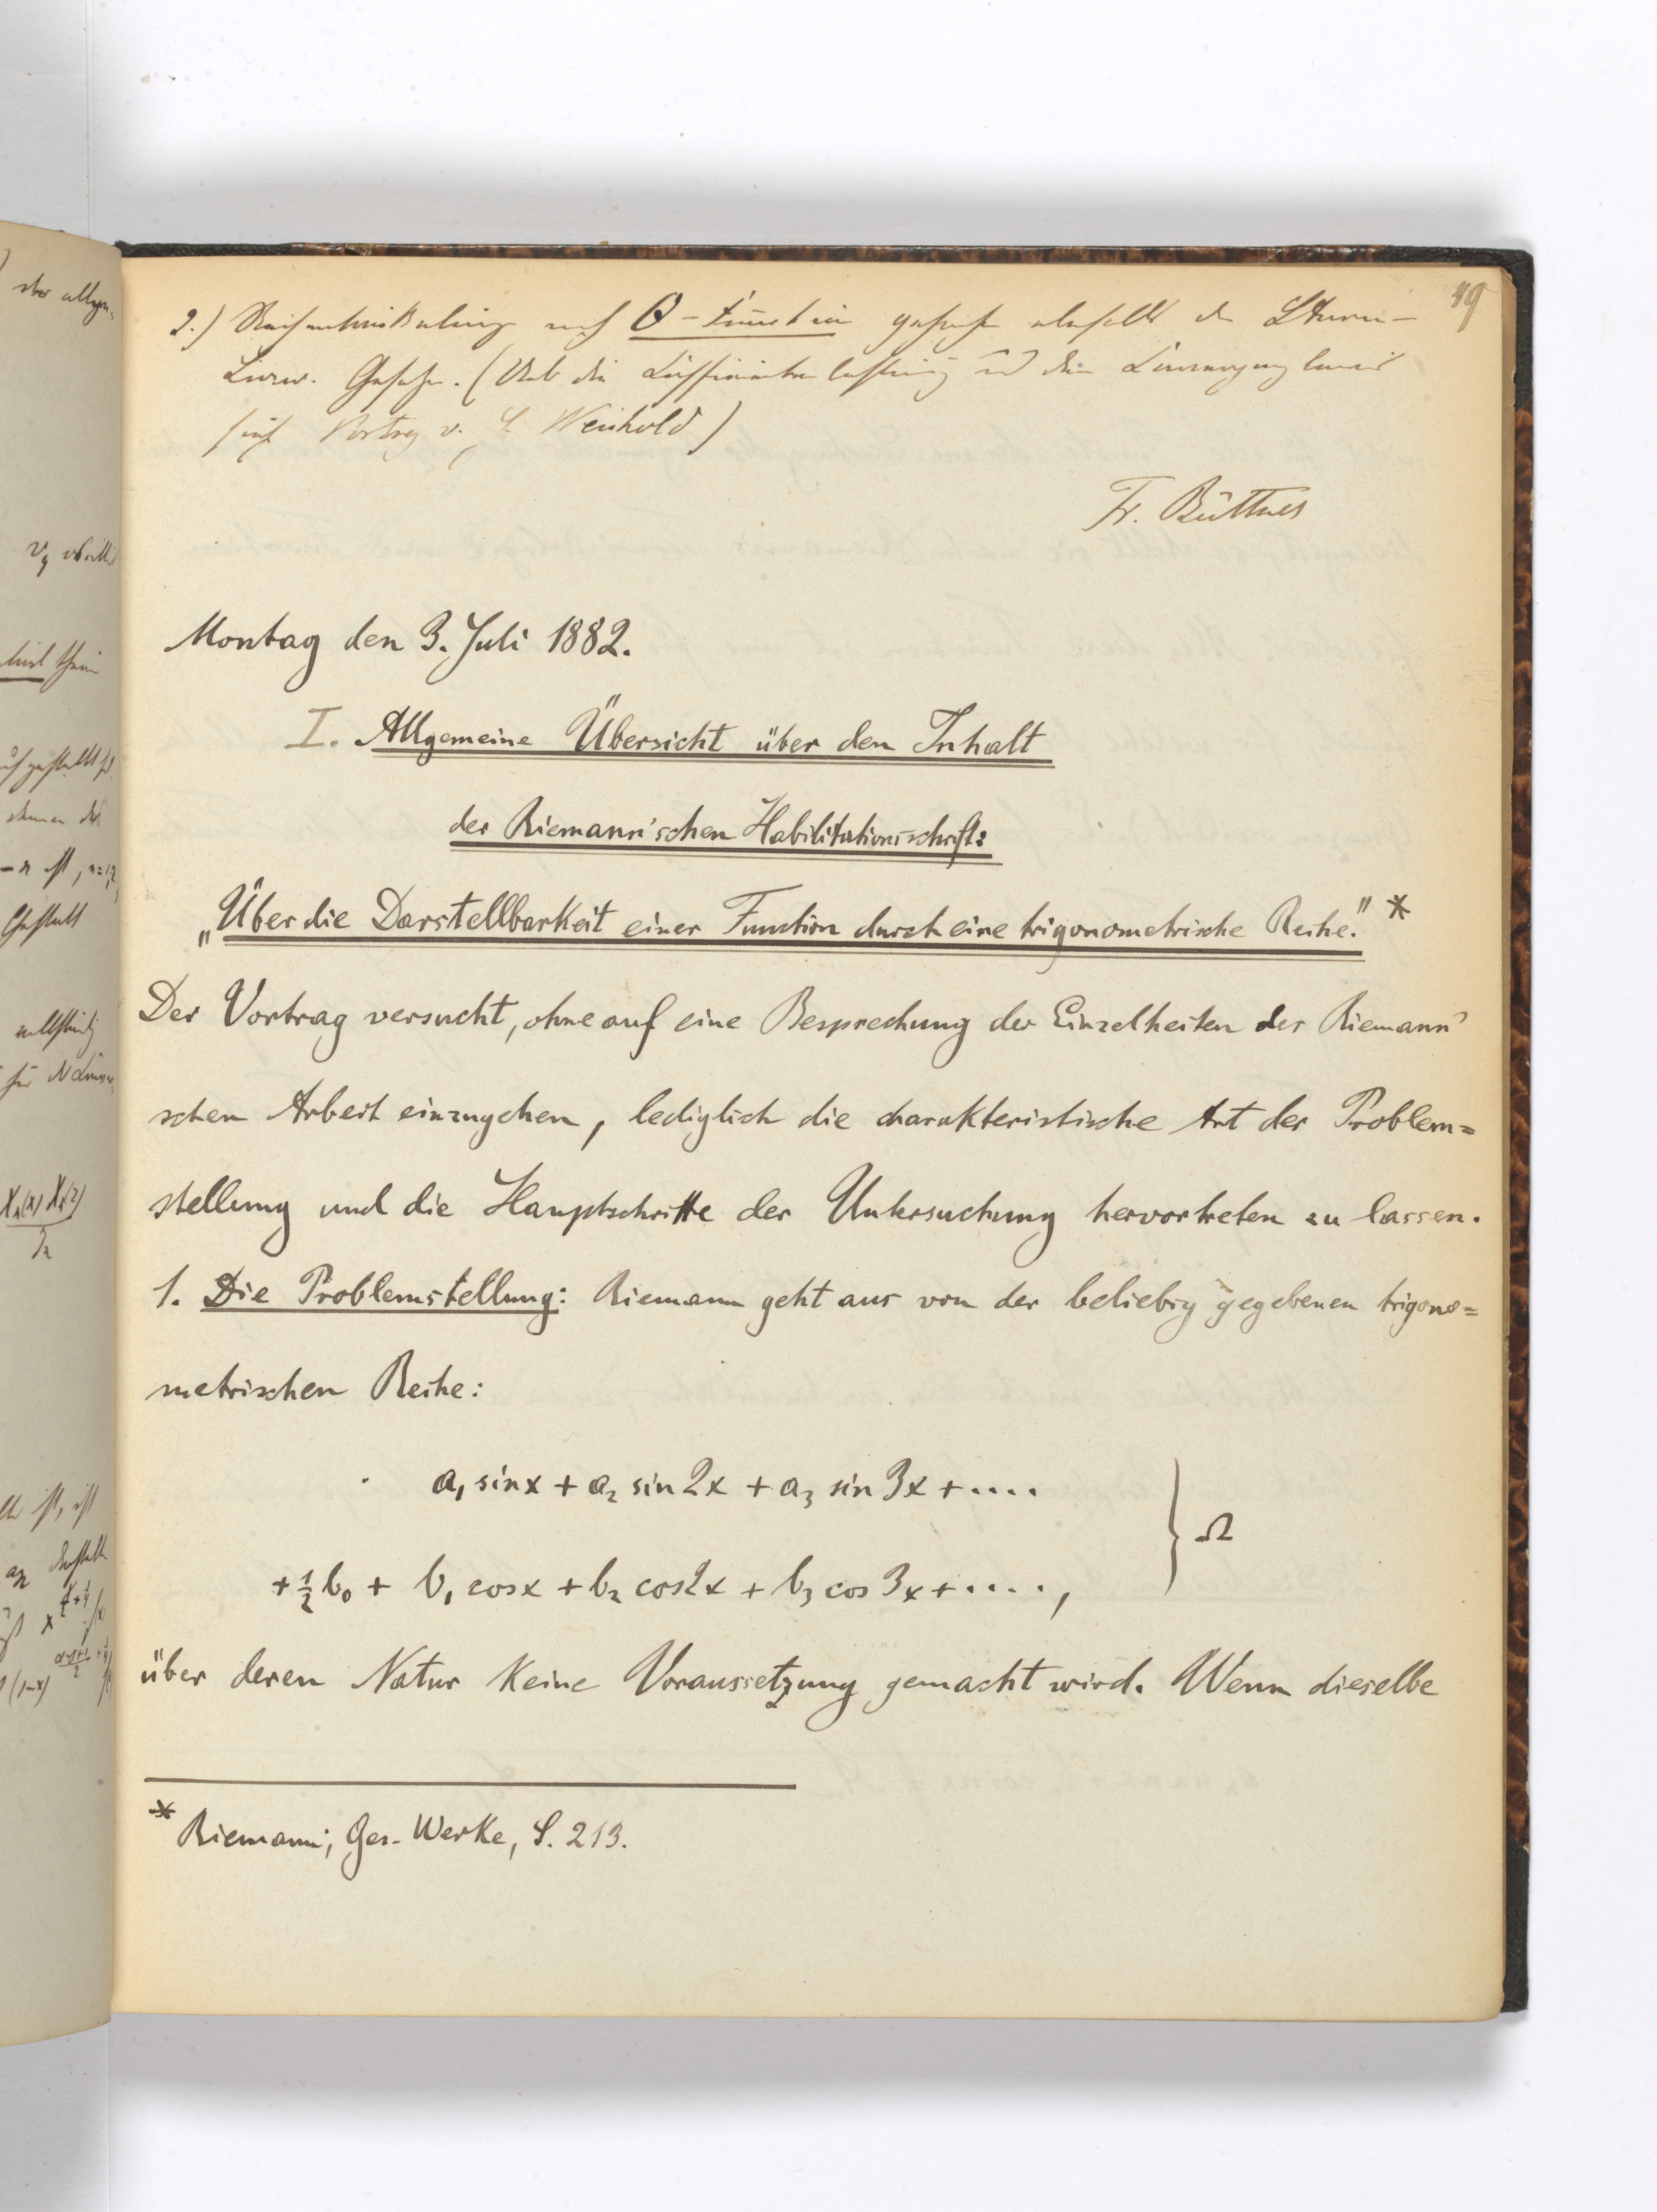 49
2.) Reihenentwickelung nach Θ-Functionen gehorchen ebenfalls den Sturm-
Liouv. Gesetzen. (Ueb. die Coefficientenbestimmung und den Convergenzbeweis
siehe Vortrag v. H. Weinhold)
Fr. Büttner
Montag den 3. Juli 1882.
I. Allgemeine Übersicht über den Inhalt
der Riemann'schen Habilitationsschrift:
„Über die Darstellbarkeit einer Function durch eine trigonometrische Reihe." *
Der Vortrag versucht, ohne auf eine Besprechung der Einzelheiten der Riemann'
schen Arbeit einzugehen, lediglich die charakteristische Art der Problem=
stellung und die Hauptschritte der Untersuchung hervortreten zu lassen.
1. Die Problemstellung: Riemann geht aus von der beliebig gegebenen trigono=
metrischen Reihe:
a₁ sin x + a₂ sin 2x + a₃ sin 3x + ....
} Ω
+ ½ b₀ + b₁ cos x + b₂ cos 2x + b₃ cos 3x + ....,
über deren Natur keine Voraussetzung gemacht wird. Wenn dieselbe
* Riemann; Ges. Werke, S. 213.